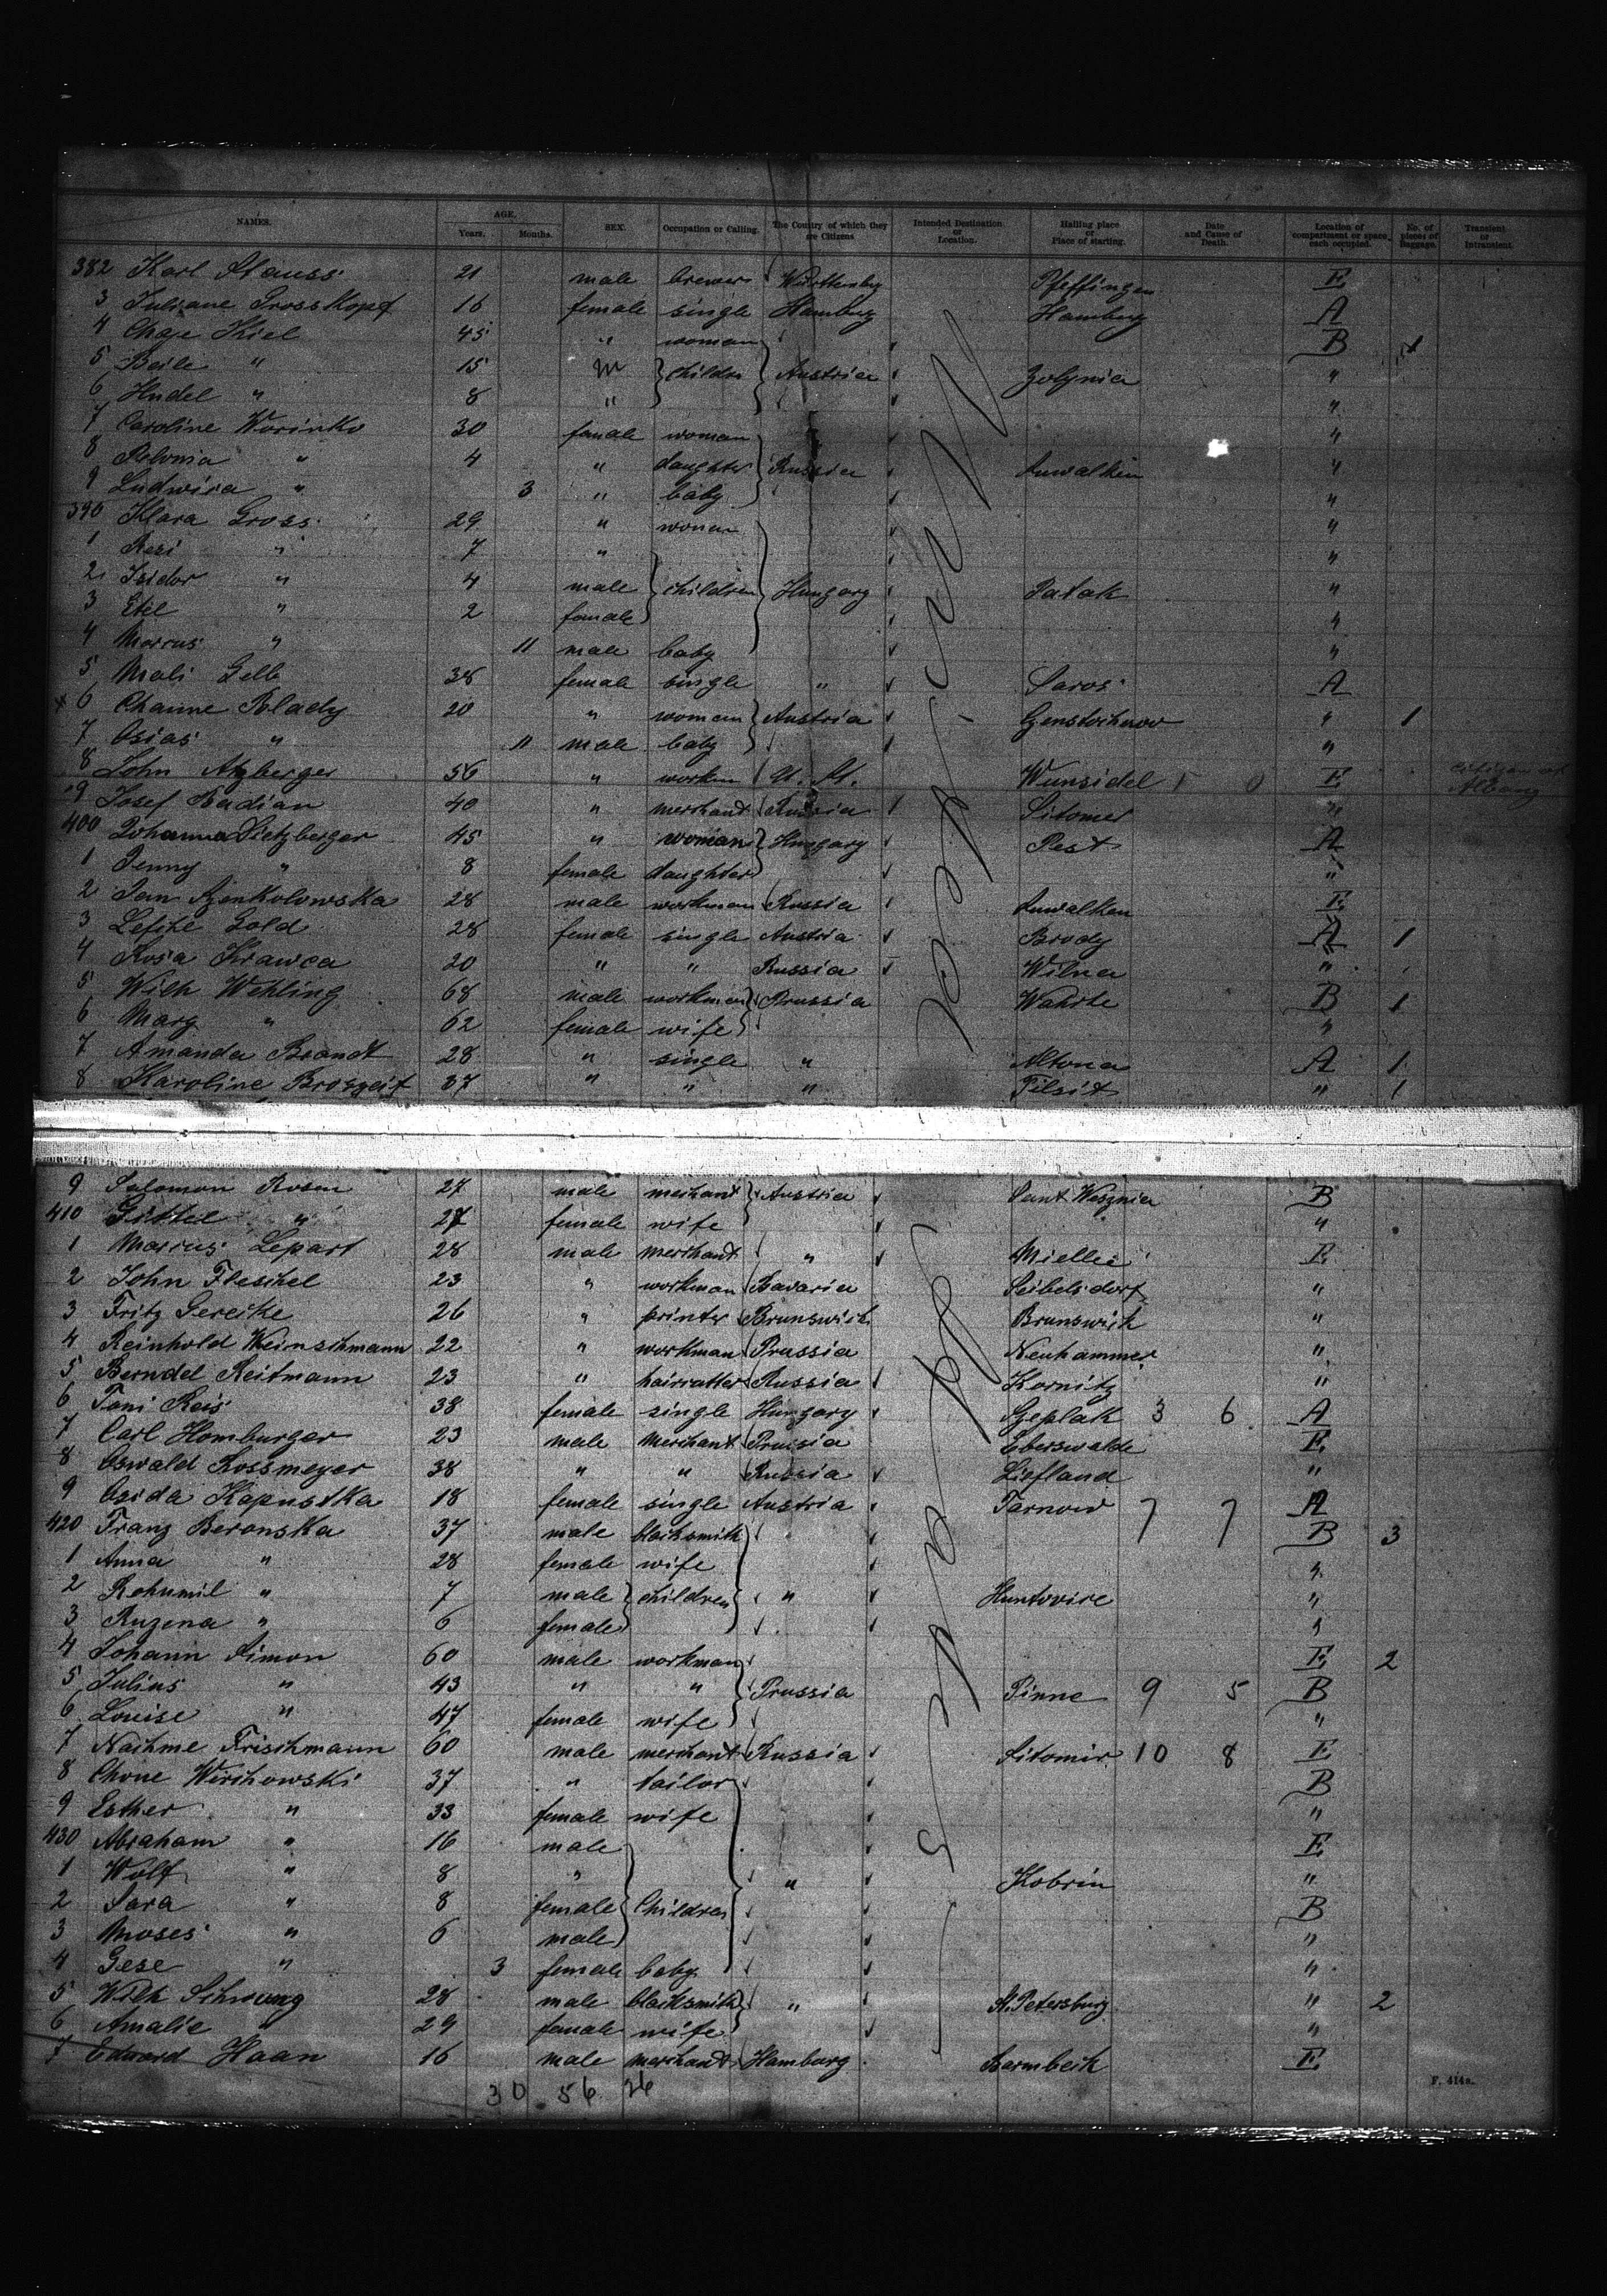 NAMES. AGE. Years. Months. SEX. Occupation or Calling. The Country of which they are Citizens Intended Destination or Location. Hailing place or Place of starting. Date and Cause of Death. Location of compartment or space each occupied. No. of pieces of Baggage. Transient or Intransient.
382 Karl Stauss 21 male brewer Württenbg Pfeffingen E
3 Juliane Grosskopf 16 female single Hamburg Hamburg A
4 Chaje Kiel 45 " woman B 1
5 Beile " 15 children Austria Zolynia "
6 Hudel " 8 " "
7 Caroline Worinko 30 female woman "
8 Polonia " 4 " daughter Russia Suwalken "
9 Ludwisa " 3 " baby "
390 Klara Gross 29 " woman "
1 Resi " 7 " "
2 Isidor " 4 male children Hungary Patak "
3 Etel " 2 female "
4 Marcus " 11 male baby "
5 Mali Gelb 38 female single " Saros A
6 Channe Blady 20 " woman Austria Czenstochow " 1
7 Osias " 11 male baby "
8 John Atzberger 56 " workm U. St. Wunsidel E citizen of Albany
9 Josef Badian 40 " merchant Russia Sitomer "
400 Johanna Sietzberger 45 " woman Hungary Pest A
1 Jenny " 8 female daughter "
2 Jan 28 male workman Russia Suwalken E
3 Lefike Gold 28 female single Austria Brody A 1
4 Rosa Krawca 20 " " Russia Wilna "
5 Wilh Wehling 68 male workman Prussia B 1
6 Marg " 62 female wife "
7 Amanda Brandt 28 " single " Altona A 1
8 Karoline Broszeit 37 " " " Tilsit " 1
9 Salomon Rosen 27 male merchant Austria B
410 Gittel " 27 female wife "
1 Marcus Lepart 28 male merchant " Mielles E
2 John Fleschel 23 " workman Bavaria Seibelsdorf "
3 Fritz Gereike 26 " printer Brunswick Brunswick "
4 Reinhold Weinschmann 22 " workman Prussia Neuhammer "
5 Berndel Reitmann 23 " haircutter Russia Kornitz "
6 Toni Reis 38 female single Hungary Szeplak 3 6 A
7 Carl Homburger 23 male merchant Prussia Eberswalde E
8 Oswald Rossmeyer 38 " " Russia Liefland "
9 Osida Kapustka 18 female single Austria Tarnow 7 7 A
420 Franz Beronska 37 male blacksmith B 3
1 Anna " 28 female wife "
2 Bohumil " 7 male children " Huntovire "
3 Ruzena " 6 female "
4 Johann Simon 60 male workman E 2
5 Julius " 43 " " Prussia Pinne 9 5 B
6 Louise " 47 female wife "
7 Nachme Frischmann 60 male merchant Russia Sitomir 10 8 E
8 Chone Wirchowski 37 " tailor B
9 Esther " 33 female wife "
430 Abraham " 16 male E
1 Wolf " 8 " " Kobrin "
2 Sara " 8 female Children B
3 Moses " 6 male "
4 Gese " 3 female baby "
5 Wilh Schwung 28 male blacksmith " St. Petersburg " 2
6 Amalie " 29 female wife "
7 Edward Haan 16 male merchant Hamburg Barmbeck E
30 56 26
F. 414a.